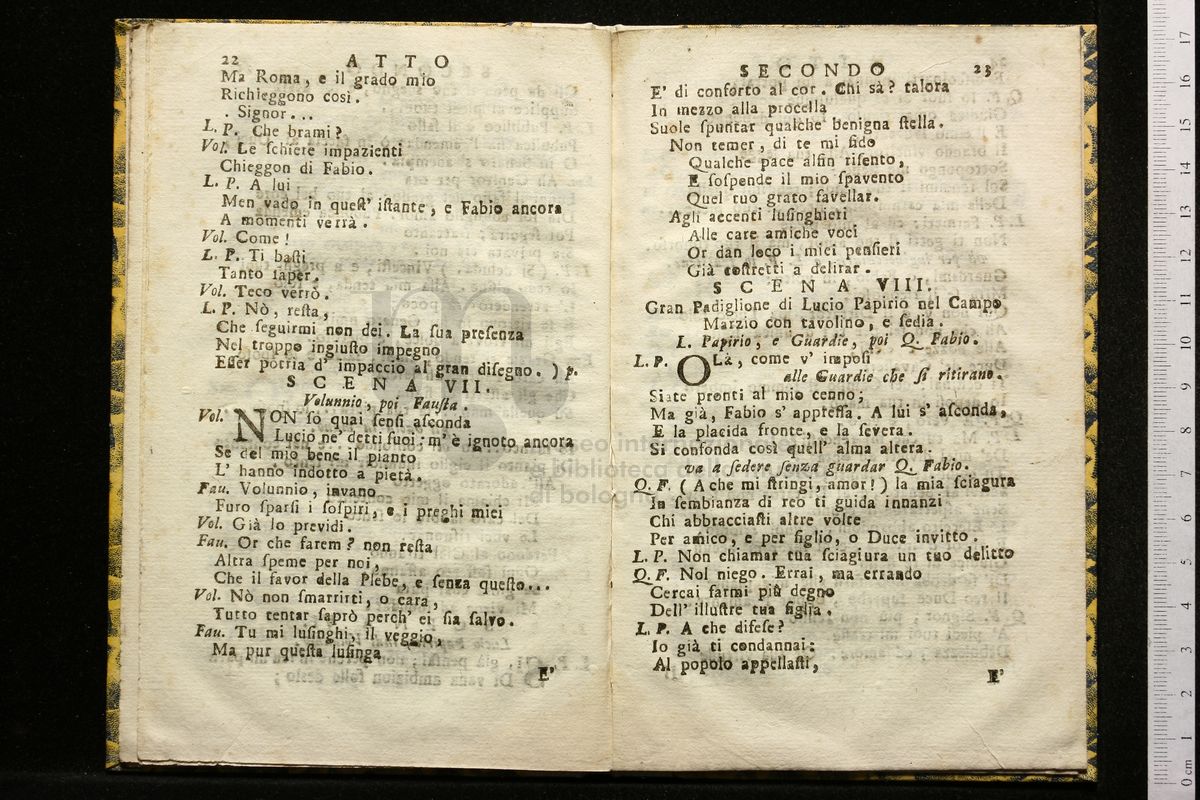 22 ATTO
Ma Roma, e il grado mio
Richieggono così.
. Signor...
L. P. Che brami?
Vol. Le ſchiere impazienti
Chieggon di Fabio.
L. P. A lui
Men vado in queſt' iſtante, e Fabio ancora
A momenti verrà.
Vol. Come!
L. P. Ti baſti
Tanto ſaper.
Vol. Teco verrò.
L. P. Nò, reſta,
Che ſeguirmi non dei. La ſua preſenza
Nel troppo ingiuſto impegno
Eſſer potria d' impaccio al gran diſegno. ) p.
SCENA VII.
Volunnio, poi Fauſta.
Vol. NON ſò quai ſenſi aſconda
Lucio ne' detti ſuoi; m' è ignoto ancora
Se del mio bene il pianto
L' hanno indotto a pietà.
Fau. Volunnio, invano
Furo ſparſi i ſoſpiri, e i preghi miei
Vol. Già lo previdi.
Fau. Or che farem? non reſta
Altra ſpeme per noi,
Che il favor della Plebe, e ſenza queſto...
Vol. Nò non ſmarrirti, o cara,
Tutto tentar ſaprò perch' ei ſia ſalvo.
Fau. Tu mi luſinghi, il veggio,
Ma pur queſta luſinga
E'
SECONDO 23
E' di conforto al cor. Chi sà? talora
In mezzo alla procella
Suole ſpuntar qualche benigna ſtella.
Non temer, di te mi fido
Qualche pace alfin riſento,
E ſoſpende il mio ſpavento
Quel tuo grato favellar.
Agli accenti luſinghieri
Alle care amiche voci
Or dan loco i miei penſieri
Già coſtretti a delirar.
SCENA VIII.
Gran Padiglione di Lucio Papirio nel Campo
Marzio con tavolino, e ſedia.
L. Papirio, e Guardie, poi Q. Fabio.
L. P. OLà, come v' impoſi
alle Guardie che ſi ritirano.
Siate pronti al mio cenno;
Ma già, Fabio s' appreſſa. A lui s' aſconda,
E la placida fronte, e la ſevera.
Si confonda così quell' alma altera.
va a ſedere ſenza guardar Q. Fabio.
Q. F. (A che mi ſtringi, amor!) la mia ſciagura
In ſembianza di reo ti guida innanzi
Chi abbracciaſti altre volte
Per amico, e per figlio, o Duce invitto.
L. P. Non chiamar tua ſciagiura un tuo delitto
Q. F. Nol niego. Errai, ma errando
Cercai farmi più degno
Dell' illuſtre tua figlia.
L. P. A che difeſe?
Io già ti condannai:
Al popolo appellaſti,
E'